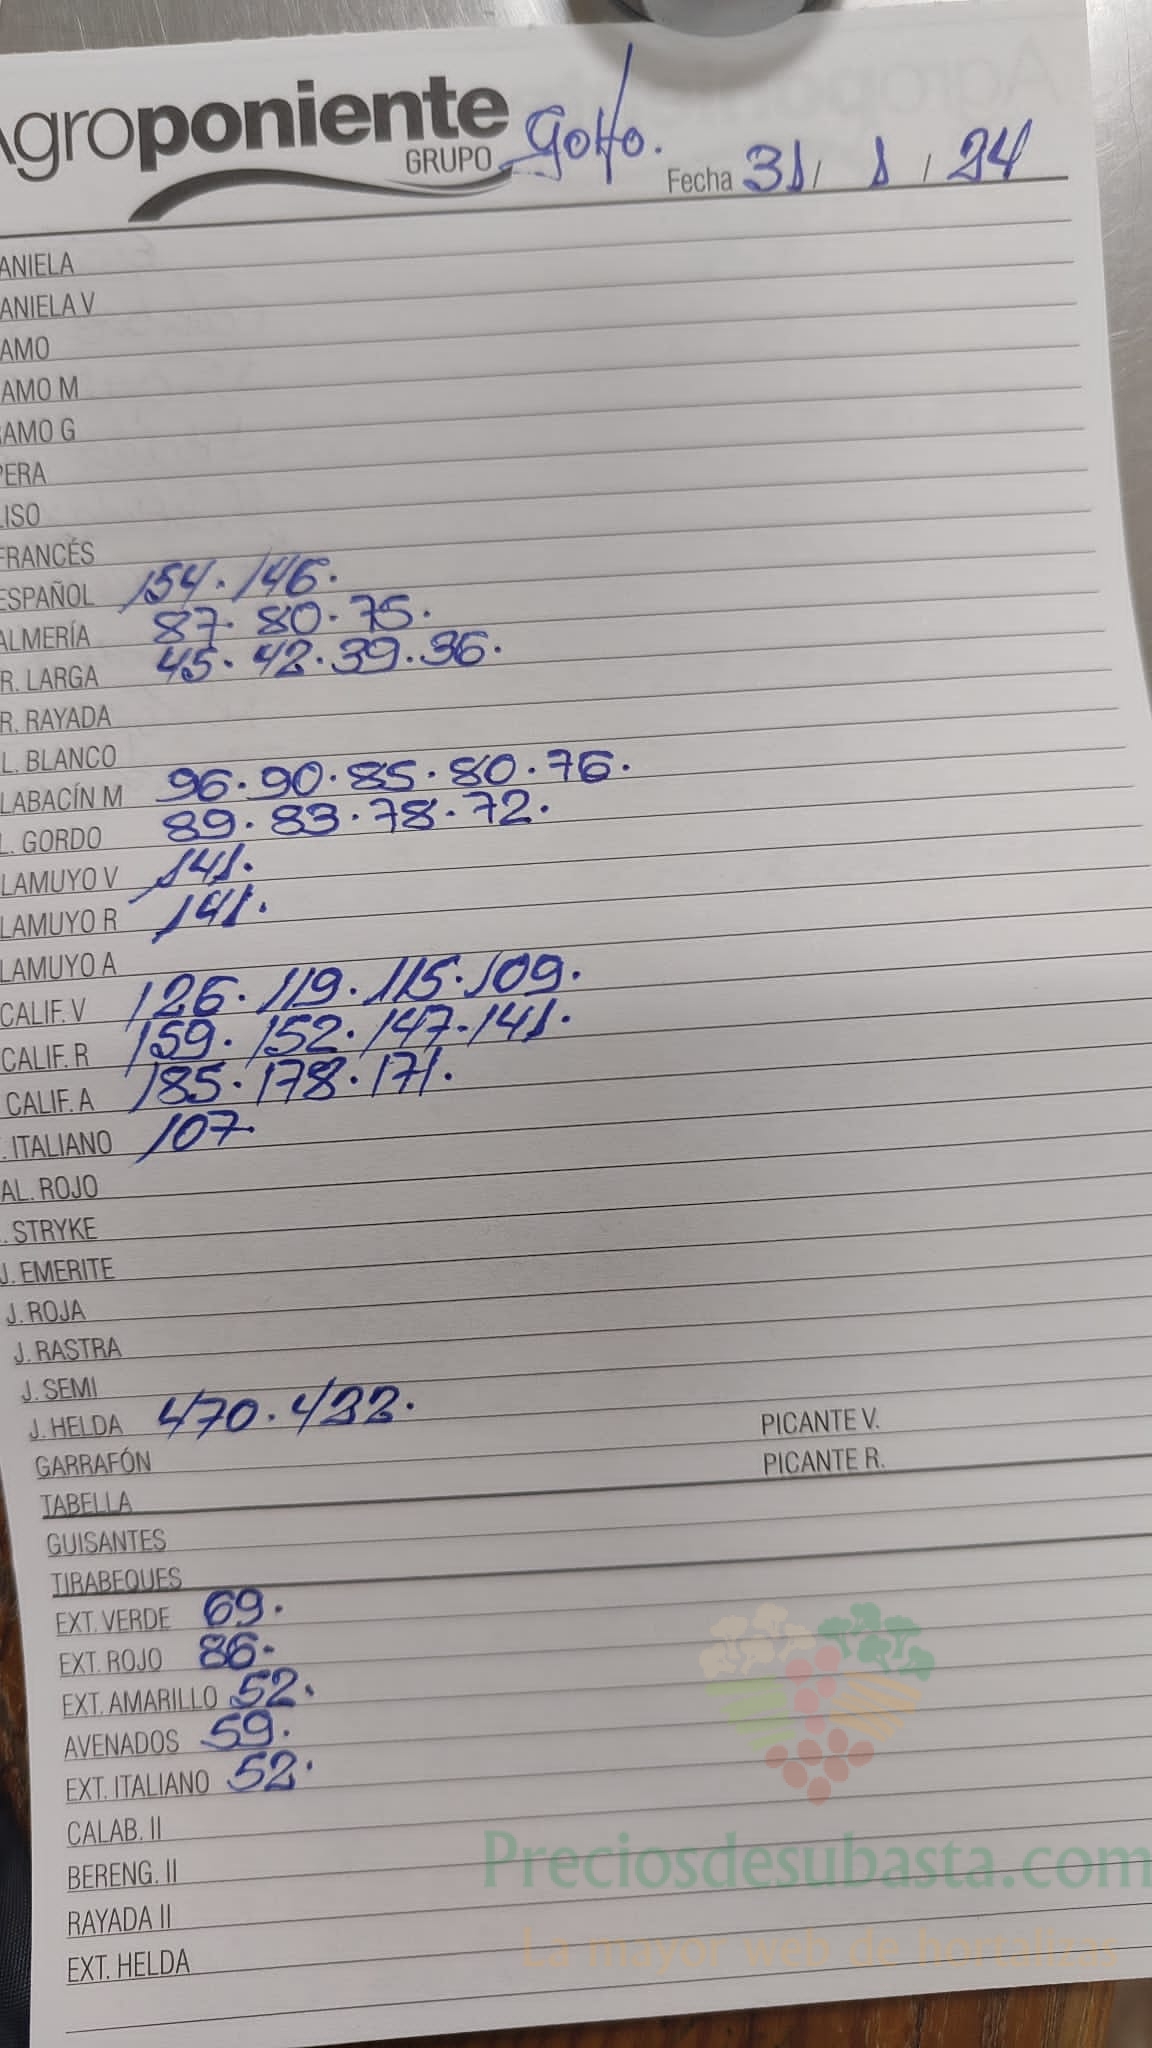 Agroponiente
GRUPO
Gotto.
Fecha 31 / 1 / 24
ANIELA
ANIELA V
AMO
AMO M
RAMO G
PERA
LISO
FRANCÉS
ESPAÑOL 154. 146.
ALMERÍA 87. 80. 75.
R. LARGA 45. 42. 39. 36.
R. RAYADA
L. BLANCO
LABACÍN M 96. 90. 85. 80. 76.
L. GORDO 89. 83. 78. 72.
LAMUYO V 141.
LAMUYO R 141.
LAMUYO A
CALIF. V 126. 119. 115. 109.
CALIF. R 159. 152. 147. 141.
CALIF. A 185. 178. 171.
. ITALIANO 107.
AL. ROJO
. STRYKE
J. EMERITE
J. ROJA
J. RASTRA
J. SEMI
J. HELDA 470. 422.
PICANTE V.
GARRAFÓN
PICANTE R.
TABELLA
GUISANTES
TIRABEQUES
EXT. VERDE 69.
EXT. ROJO 86.
EXT. AMARILLO 52.
AVENADOS 59.
EXT. ITALIANO 52.
CALAB. II
BERENG. II
RAYADA II
EXT. HELDA
Preciosdesubasta.com
La mayor web de hortalizas